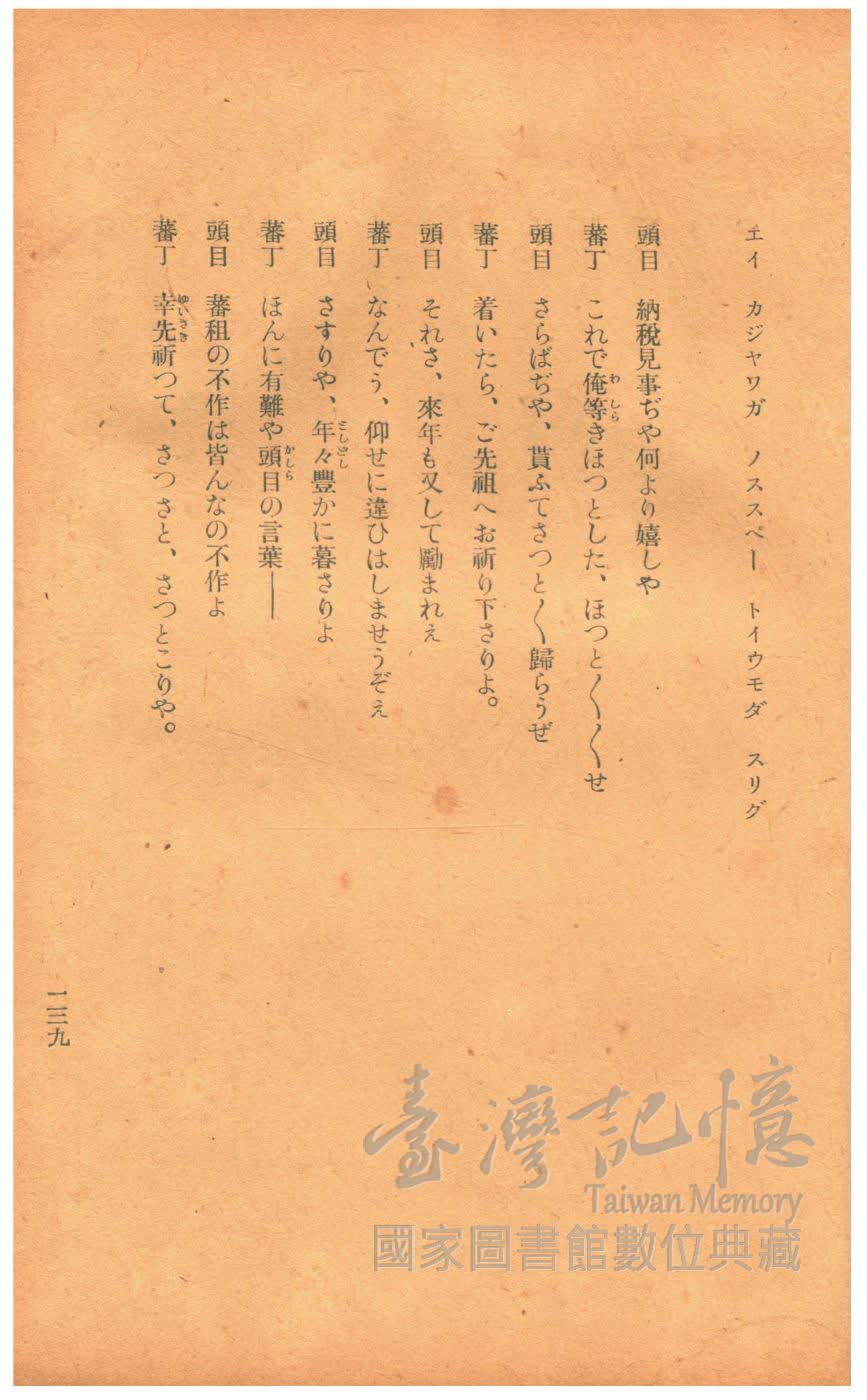 エイ カジヤワガ ノススペー トイウモダ スリグ
頭目 納税見事ぢや何より嬉しや
蕃丁 これで俺等きほつとした、ほつと〱〱せ
頭目 さらばぢや、貰ふてさつと〱歸らうぜ
蕃丁 着いたら、ご先祖へお祈り下さりよ。
頭目 それさ、來年も又して勵まれぇ
蕃丁 なんでう、仰せに違ひはしませうぞぇ
頭目 さすりや、年々豐かに暮さりよ
蕃丁 ほんに有難や頭目の言葉――
頭目 蕃租の不作は皆んなの不作よ
蕃丁 幸先祈つて、さつさと、さつとこりや。
一三九
臺灣記憶
Taiwan Memory
國家圖書館數位典藏